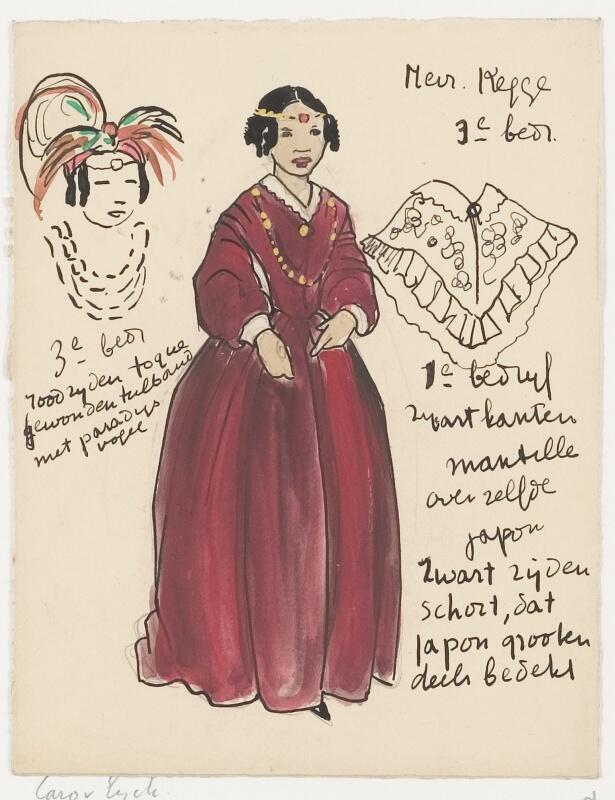 Mevr. Kegge
3e bedr.
3e bedr
rood zijden toque
gewonden tulband
met paradijs
vogel
1e bedrijf
zwart kanten
mantille
over zelfde
japon
Zwart zijden
schort, dat
japon grooten
deels bedekt